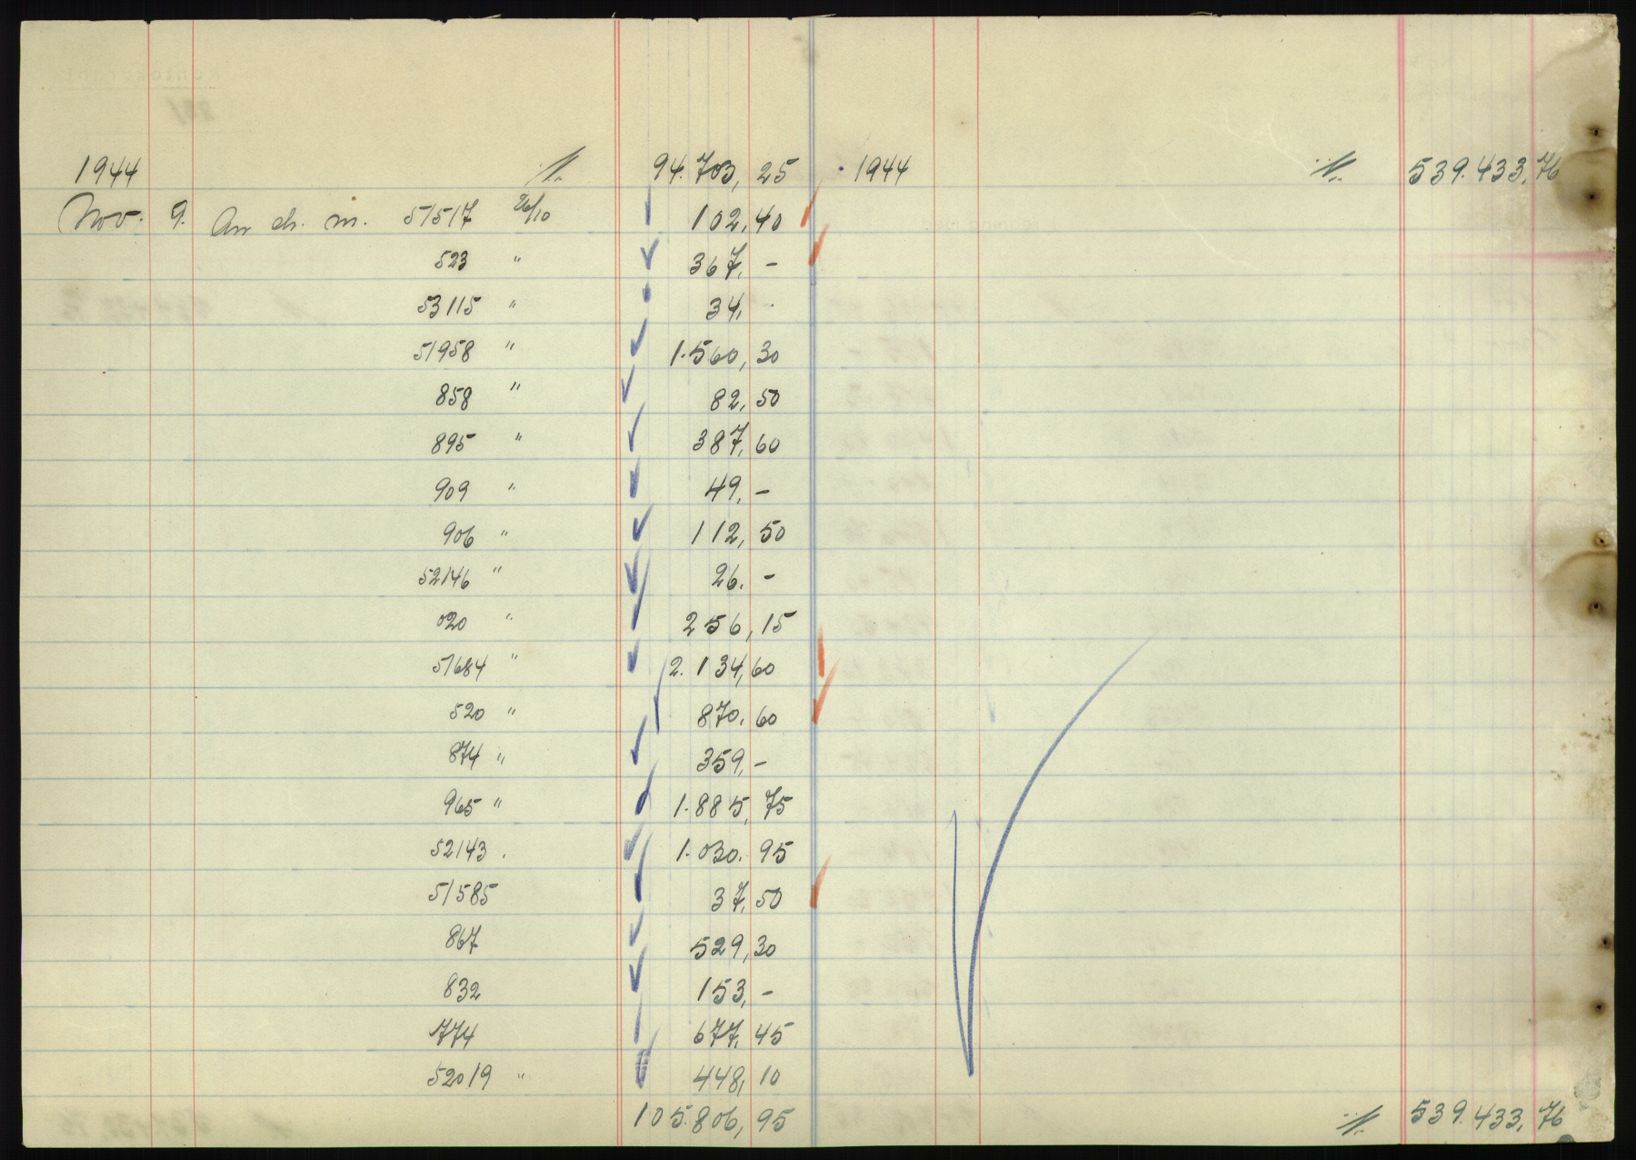 1944 ·/. 94.703,25 1944 ·/. 539.433,76
Nov. 9. An ch. m. 51517 26/10 102,40
523 " 367,-
53115 " 34,-
51958 " 1.560,30
858 " 82,50
895 " 387,60
909 " 49,-
906 " 112,50
52146 " 26.-
020 " 256,15
51684 " 2.134,60
520 " 870.60
874 " 359,-
965 " 1.885,75
52143 . 1.030.95
51585 37,50
867 529,30
832 153,-
774 677,45
52019 " 448,10
105.806,95 ·/. 539.433,76